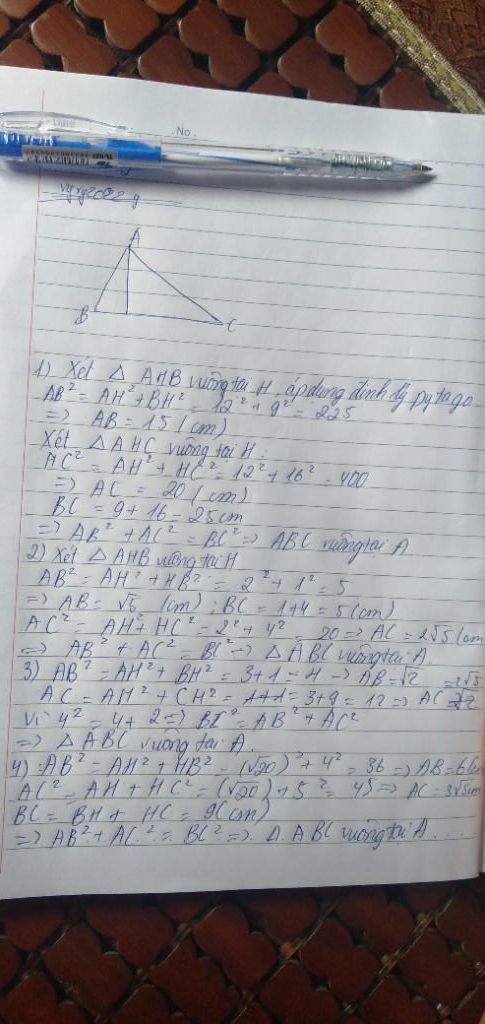 No.
A
B
C
1) Xét △ AHB vuông tại H, áp dụng định lý pytago
AB² = AH² + BH² = 12² + 9² = 225
=> AB = 15 (cm)
Xét △ AHC vuông tại H:
AC² = AH² + HC² = 12² + 16² = 400
=> AC = 20 (cm)
BC = 9 + 16 = 25cm
=> AB² + AC² = BC² => ABC vuông tại A
2) Xét △ AHB vuông tại H
AB² = AH² + HB² = 2² + 1² = 5
=> AB = √5 (cm); BC = 1+4 = 5 (cm)
AC² = AH² + HC² = 2² + 4² = 20 => AC = 2√5 (cm
=> AB² + AC² = BC² => △ ABC vuông tại A.
3) AB² = AH² + BH² = 3+1 = 4 => AB = √2
AC = AH² + CH² = 3+9 = 12 => AC = 2√3
Vì 4² = 4 + 2 => BC² = AB² + AC²
=> △ ABC vuông tại A.
4) : AB² = AH² + HB² = (√20)² + 4² = 36 => AB = 6(cm
AC² = AH + HC² = (√20) + 5² = 45 => AC = 3√5cm
BC = BH + HC = 9(cm)
=> AB² + AC² = BC² => △ ABC vuông tại A